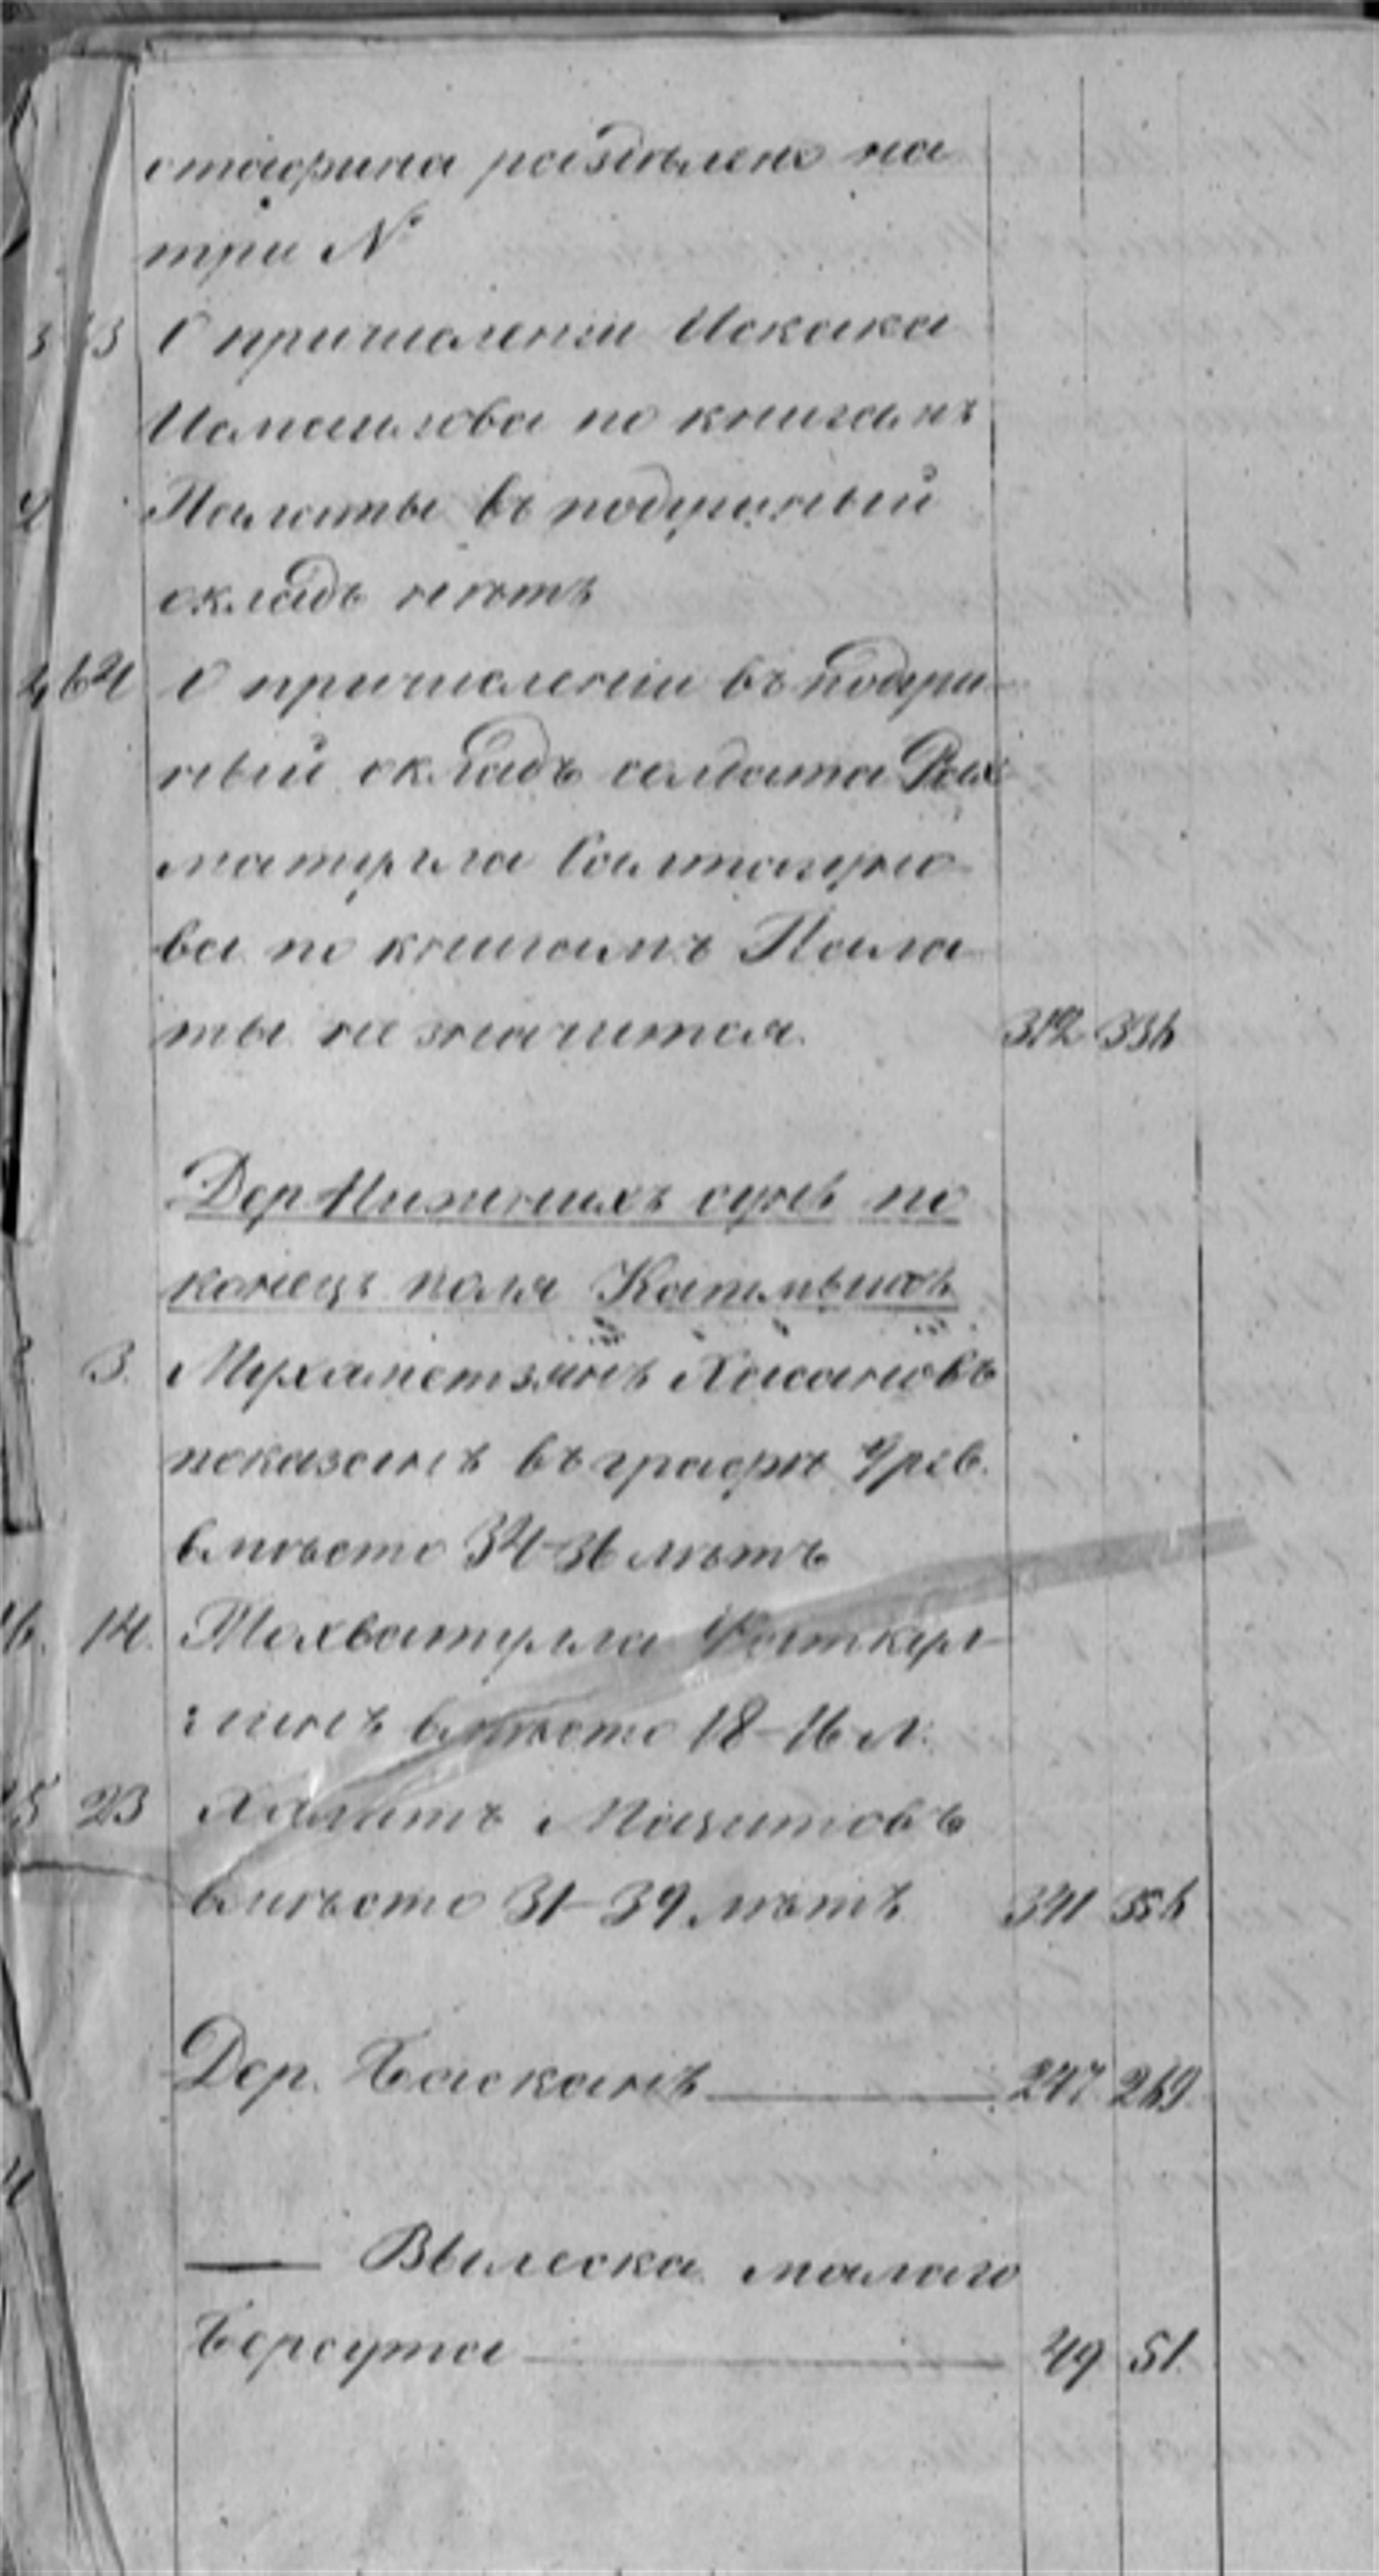 стафина разделено на
три №
3 53 О причислении Искака
Исмаилова по книгамъ
Палаты въ подушный
окладъ нѣтъ
64 О причислении въ подуш-
ный окладъ солдата Рах
матулла Салтагуло-
ва по книгамъ Пала
ты не значится. 312 336
Дер Нижнихъ сунь по
конецъ поля Катмышъ
3. Мухаметзянъ Хасановъ
показанъ въ графѣ 9 рев.
вмѣсто 34-36 лѣтъ
16. 14. Мохватулла Фаткул-
:инъ вмѣсто 18-16 л.
23 Халитъ Мазитовъ
вмѣсто 31-39 лѣтъ 341 356
Дер. Баскань 247 269
Выселка малаго
Берсута 49 51